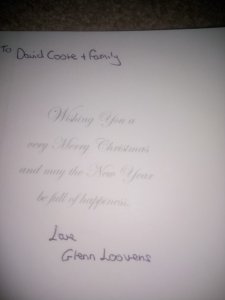 To David Coote + family
Wishing You a
very Merry Christmas
and may the New Year
be full of happiness.
Love
Glenn Loovens